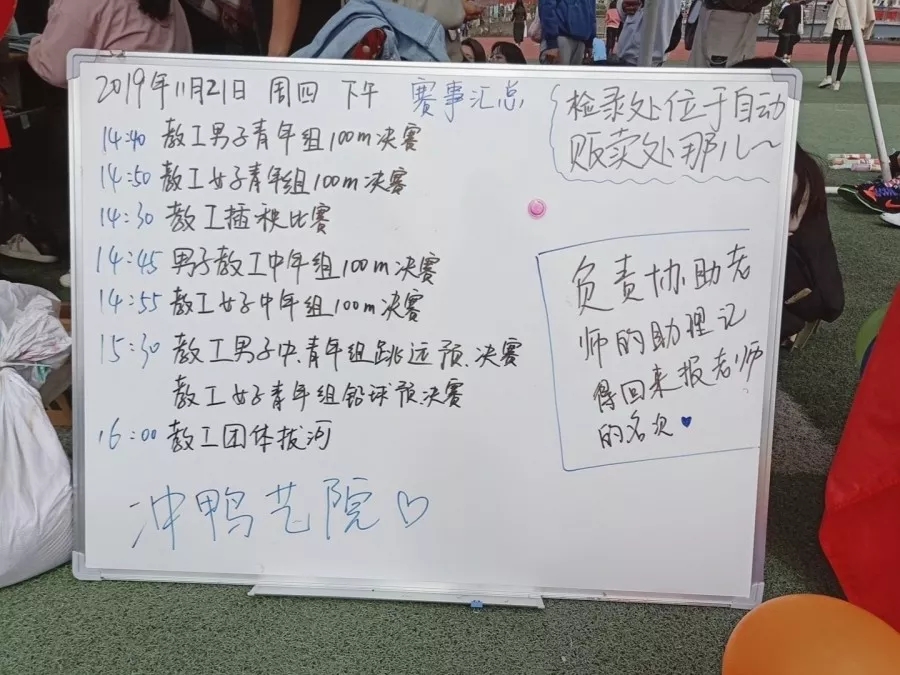 2019年11月21日 周四 下午 赛事汇总
14:40 教工男子青年组100m决赛
14:50 教工女子青年组100m决赛
14:30 教工插秧比赛
14:45 男子教工中年组100m决赛
14:55 教工女子中年组100m决赛
15:30 教工男子中、青年组跳远预、决赛
教工女子青年组铅球预、决赛
16:00 教工团体拔河
冲鸭艺院♡
检录处位于自动
贩卖处那儿~
负责协助老
师的助理记
得回来报老师
的名次♥